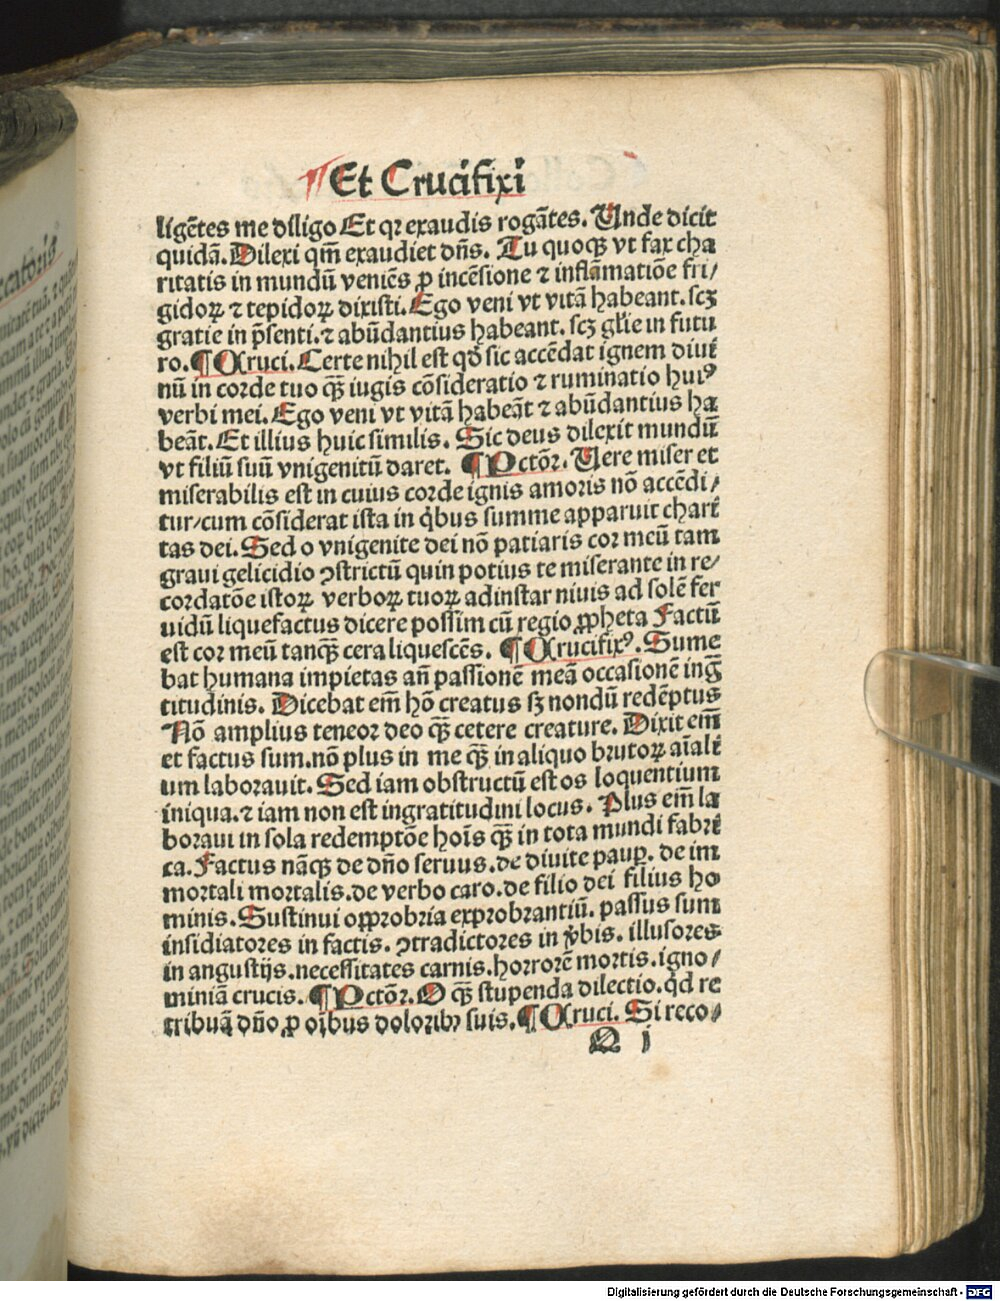 ¶ Et Crucifixi
ligẽtes me diligo Et qꝛ exaudis rogãtes. Unde dicit
quidã. Dilexi qm̃ exaudiet dñs. Tu quoqꝫ vt fax cha
ritatis in mundũ veniẽs ꝓ incẽsione ⁊ inflãmatiõe fri/
gidoꝝ ⁊ tepidoꝝ dixisti. Ego veni vt vitã habeant. scꝫ
gratie in p̃senti. ⁊ abũdantius habeant. scꝫ gl̃ie in futu
ro. ¶ Cruci. Certe nihil est qđ sic accẽdat ignem diui
nũ in corde tuo qꝫ̃ iugis cõsideratio ⁊ ruminatio huiꝰ
verbi mei. Ego veni vt vitã habeãt ⁊ abũdantius ha
beãt. Et illius huic similis. Sic deus dilexit mundũ
vt filiũ suũ vnigenitũ daret. ¶ Pctõꝛ. Uere miser et
miserabilis est in cuius corde ignis amoris nõ accẽdi/
tur/cum cõsiderat ista in q̇bus summe apparuit chari
tas dei. Sed o vnigenite dei nõ patiaris coꝛ meũ tam
graui gelicidio ꝯstrictũ quin potius te miserante in re/
coꝛdatõe istoꝝ verboꝝ tuoꝝ adinstar niuis ad solẽ fer
uidũ liquefactus dicere possim cũ regio ꝓpheta Factũ
est coꝛ meũ tanqꝫ̃ cera liquescẽs. ¶ Crucifixꝰ. Sume
bat humana impietas añ passionẽ meã occasionẽ ing̃
titudinis. Dicebat em̃ hõ creatus sꝫ nondũ redẽptus
Nõ amplius teneoꝛ deo qꝫ̃ cetere creature. Dixit em̃
et factus sum. nõ plus in me qꝫ̃ in aliquo brutoꝝ aĩali
um laborauit. Sed iam obstructũ est os loquentium
iniqua. ⁊ iam non est ingratitudini locus. Plus em̃ la
boꝛaui in sola redemptõe hoĩs qꝫ̃ in tota mundi fabri
ca. Factus nãqꝫ de dño seruus. de diuite paup̱. de im
moꝛtali moꝛtalis. de verbo caro. de filio dei filius ho
minis. Sustinui opꝓbria expꝛobꝛantiũ. passus sum
insidiatoꝛes in factis. ꝯtradictoꝛes in v̓bis. illusoꝛes
in angustijs. necessitates carnis. hoꝛroꝛẽ moꝛtis. igno/
miniã crucis. ¶ Pctõꝛ. O qꝫ̃ stupenda dilectio. qđ re
tribuã dño ꝓ oĩbus doloꝛibꝫ suis. ¶ Cruci. Si reco/
Q j